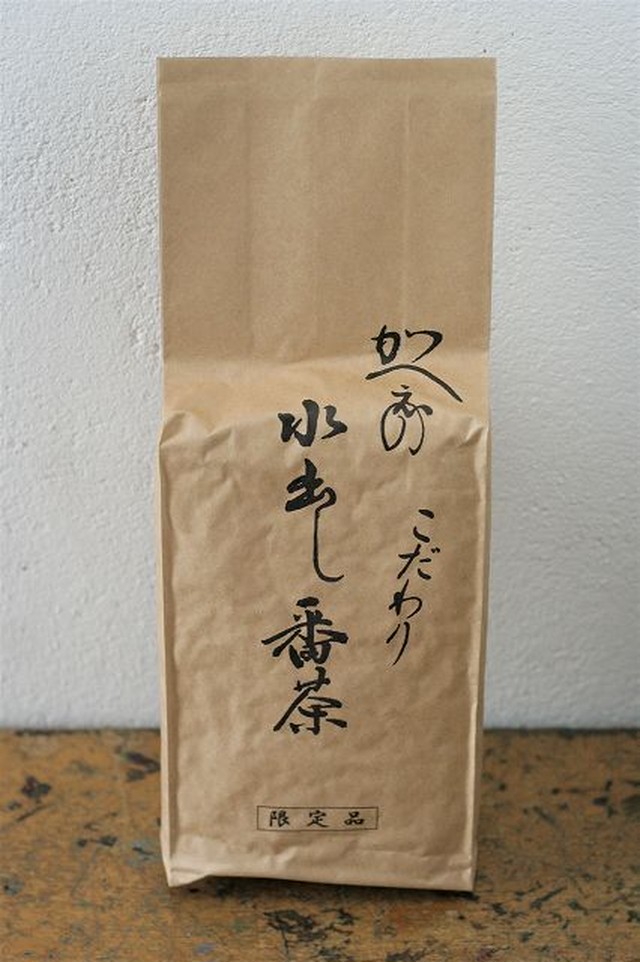 こだわり
水出し番茶
限定品